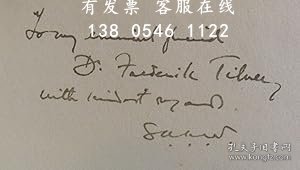 有发票 客服在线
138 0546 1122
To my eminent friend
Dr. Frederik Tilney
with kindest regards
孔夫子旧书网
www.kongfz.com